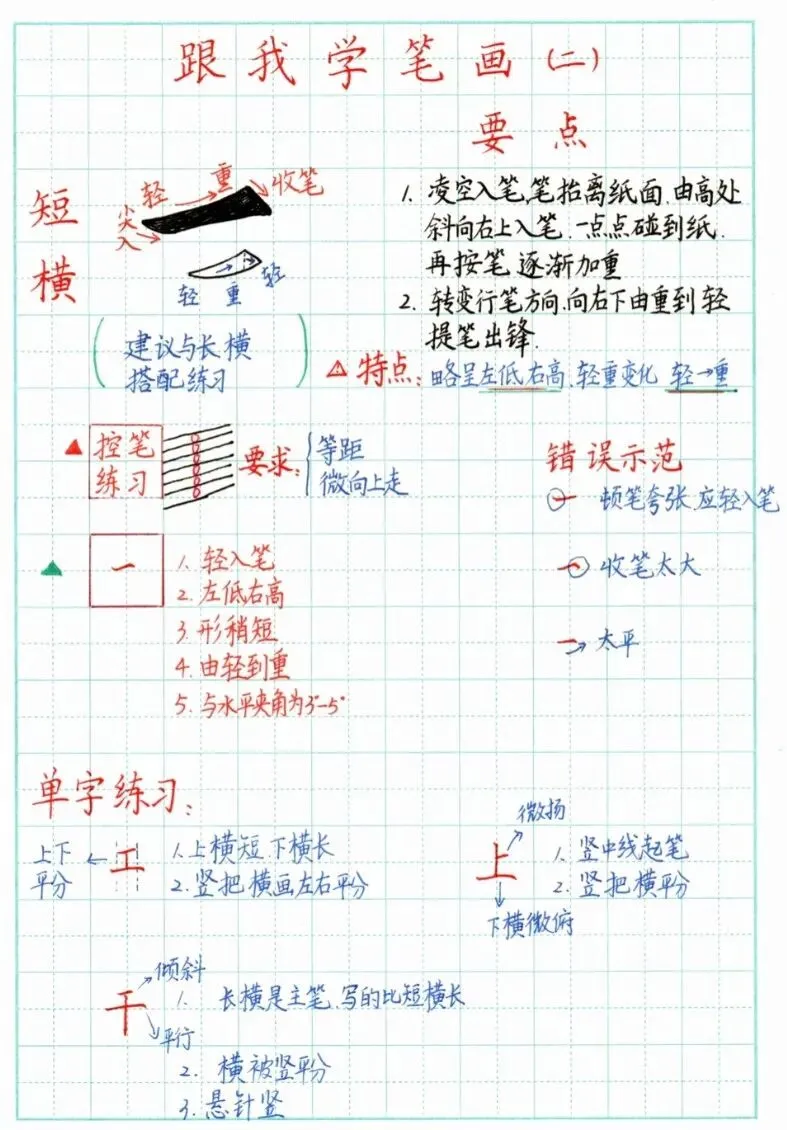 跟我学笔画(二)
要点
短横
尖入
轻 重 收笔
轻 重 轻
1. 凌空入笔,笔抬离纸面,由高处
斜向右上入笔,一点点碰到纸,
再按笔,逐渐加重
2. 转变行笔方向,向右下由重到轻
提笔出锋.
建议与长横
搭配练习
特点:略呈左低右高、轻重变化 轻→重
控笔
练习
要求:
等距
微向上走
错误示范
顿笔夸张,应轻入笔
收笔太大
太平
一
1. 轻入笔
2. 左低右高
3. 形稍短
4. 由轻到重
5. 与水平夹角为3°-5°
单字练习:
上下
平分
工
1. 上横短,下横长
2. 竖把横画左右平分
微扬
上
下横微俯
1. 竖中线起笔
2. 竖把横平分
倾斜
干
平行
1. 长横是主笔,写的比短横长
2. 横被竖平分
3. 悬针竖